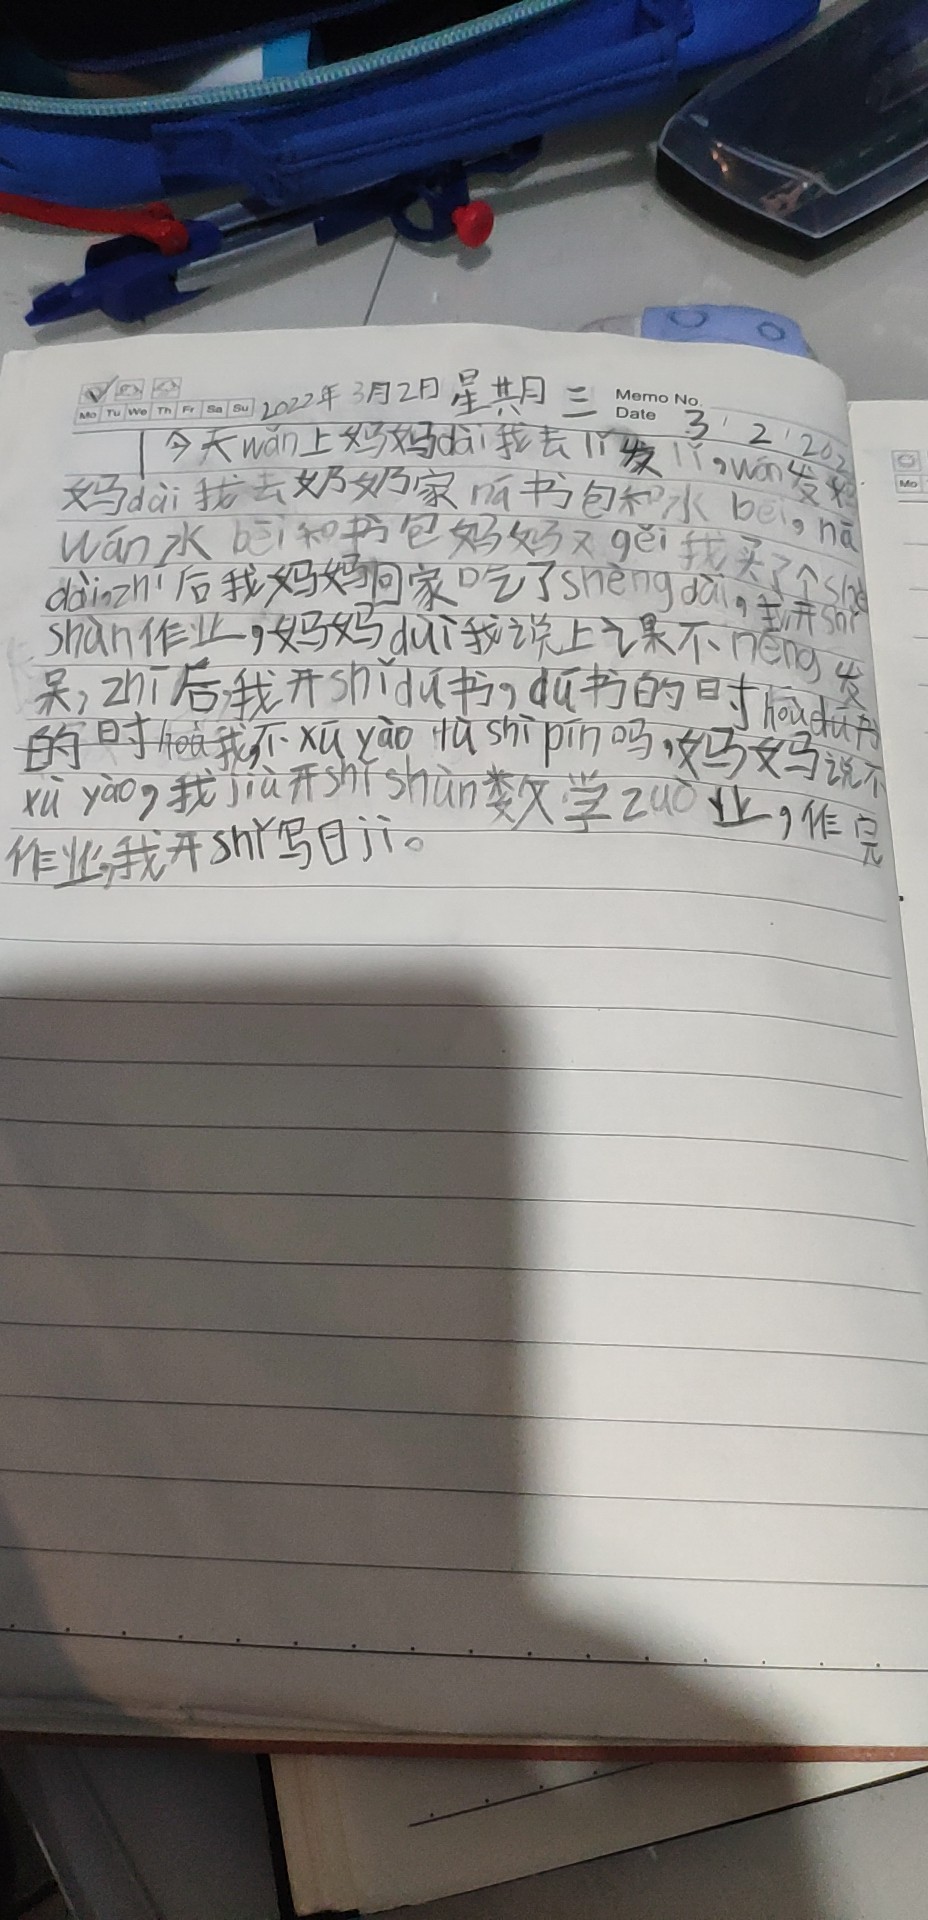 Mo Tu We Th Fr Sa Su 2022年3月2日 星其月三 Memo No.
Date 3 2 202
今天wǎn上妈妈dài我去lǐ发lǐ,wán发妈
妈dài我去奶奶家ná书包和水bēi,ná
wán水bēi和书包妈妈又gěi我买了个
dài,zhī后我妈妈回家吃了shèngdài,我开shǐ
shàn作业,妈妈duì我说上课不néng发
呆,zhī后,我开shǐdú书,dú书的时hòudú书
的时hoù我,不xū yào lù shì pín吗,妈妈说不
xū yào,我jiù开shǐshùn数学zuò业,作完
作业,我开shǐ写日jì。
Mo